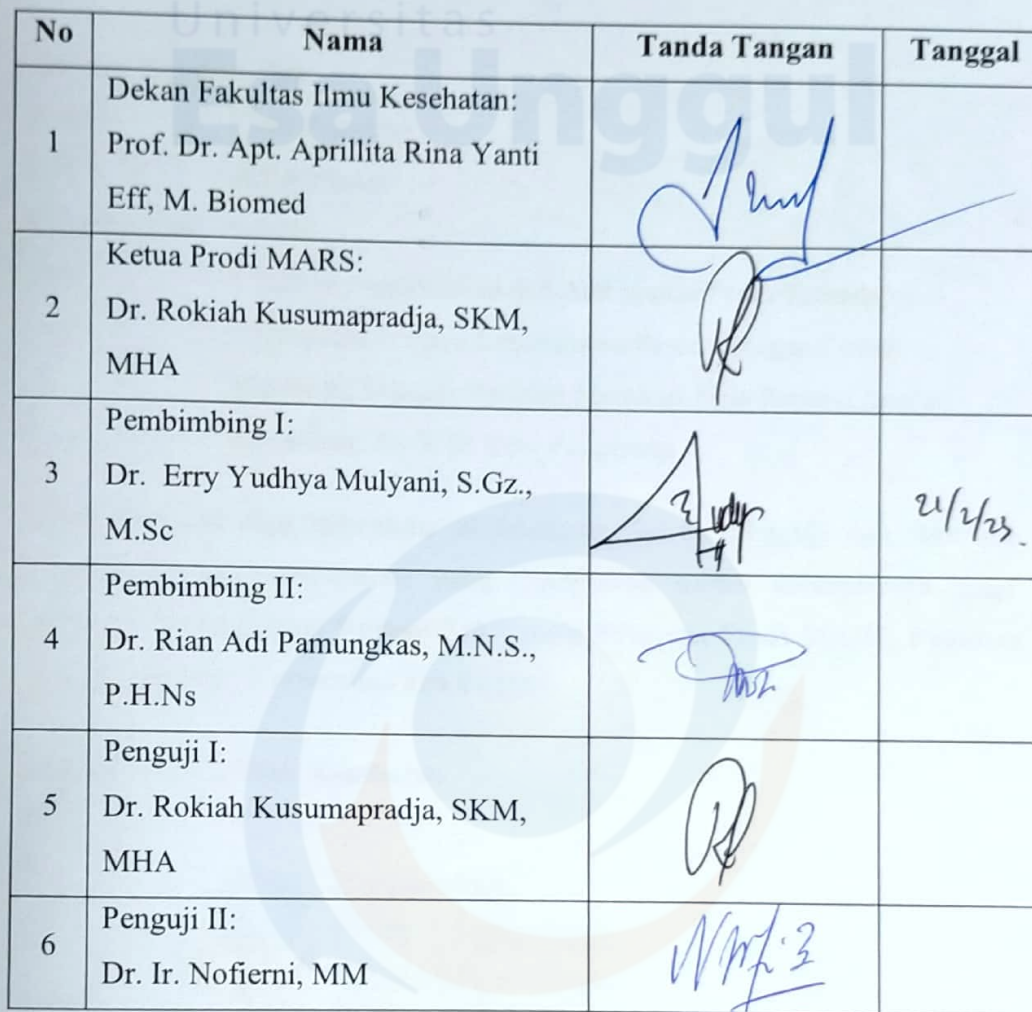 Universitas
Esa Unggul
No Nama Tanda Tangan Tanggal
Dekan Fakultas Ilmu Kesehatan:
1 Prof. Dr. Apt. Aprillita Rina Yanti
Eff, M. Biomed
Ketua Prodi MARS:
2 Dr. Rokiah Kusumapradja, SKM,
MHA
Pembimbing I:
3 Dr. Erry Yudhya Mulyani, S.Gz.,
M.Sc
21/2/25.
Pembimbing II:
4 Dr. Rian Adi Pamungkas, M.N.S.,
P.H.Ns
Penguji I:
5 Dr. Rokiah Kusumapradja, SKM,
MHA
Penguji II:
6 Dr. Ir. Nofierni, MM